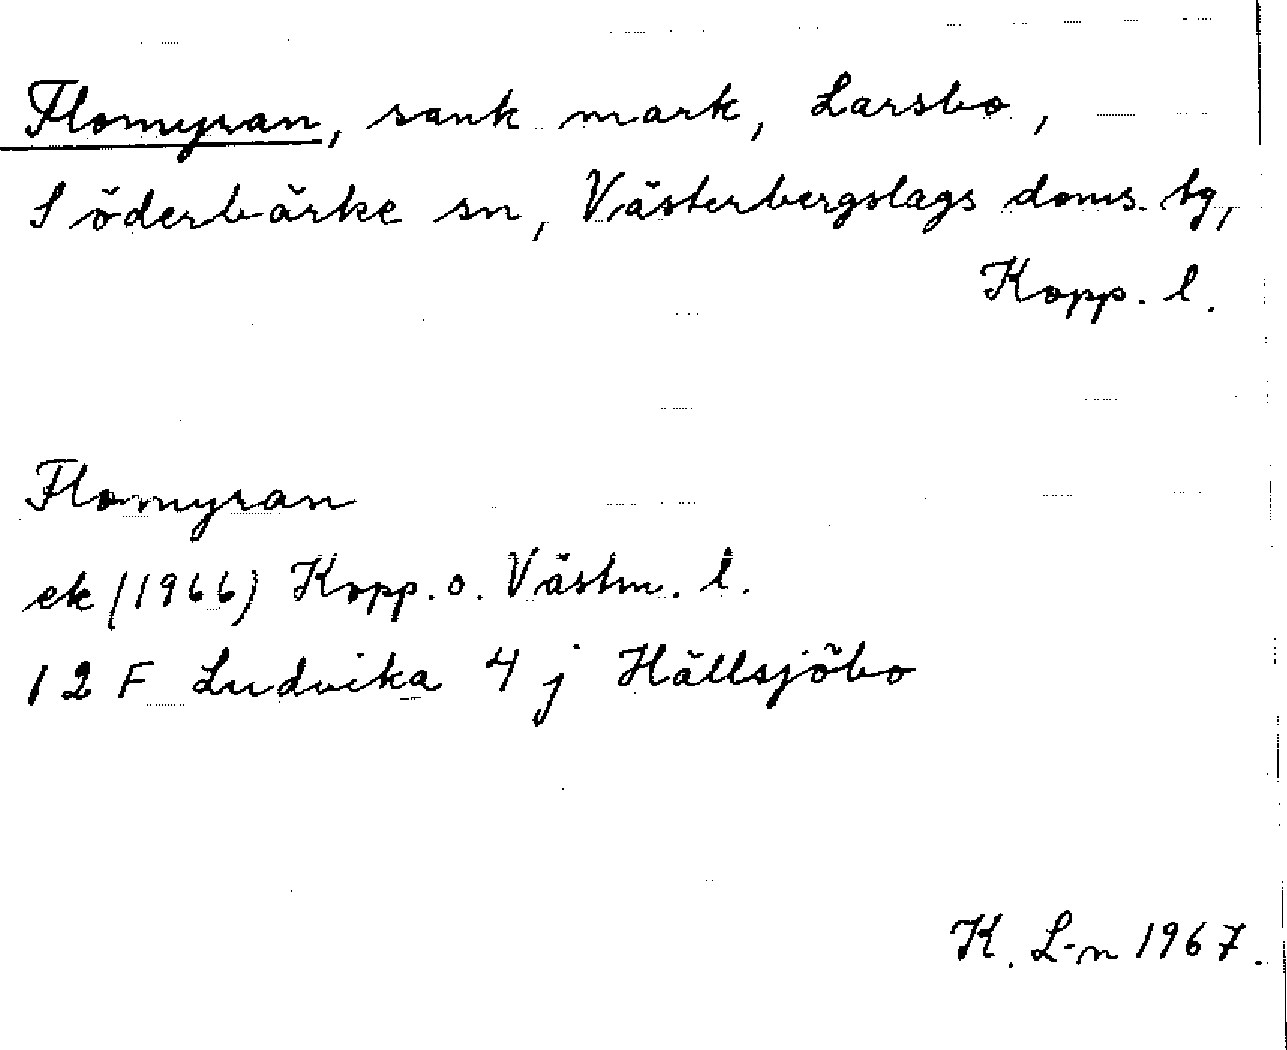 Flomyran, sank mark, Larsbo,
Söderbärke sn, Västerbergslags doms. tg,
Kopp. l.
Flomyran
ek (1966) Kopp. o. Västm. l.
12 F Ludvika 4 j Hällsjöbo
K. L-n 1967.